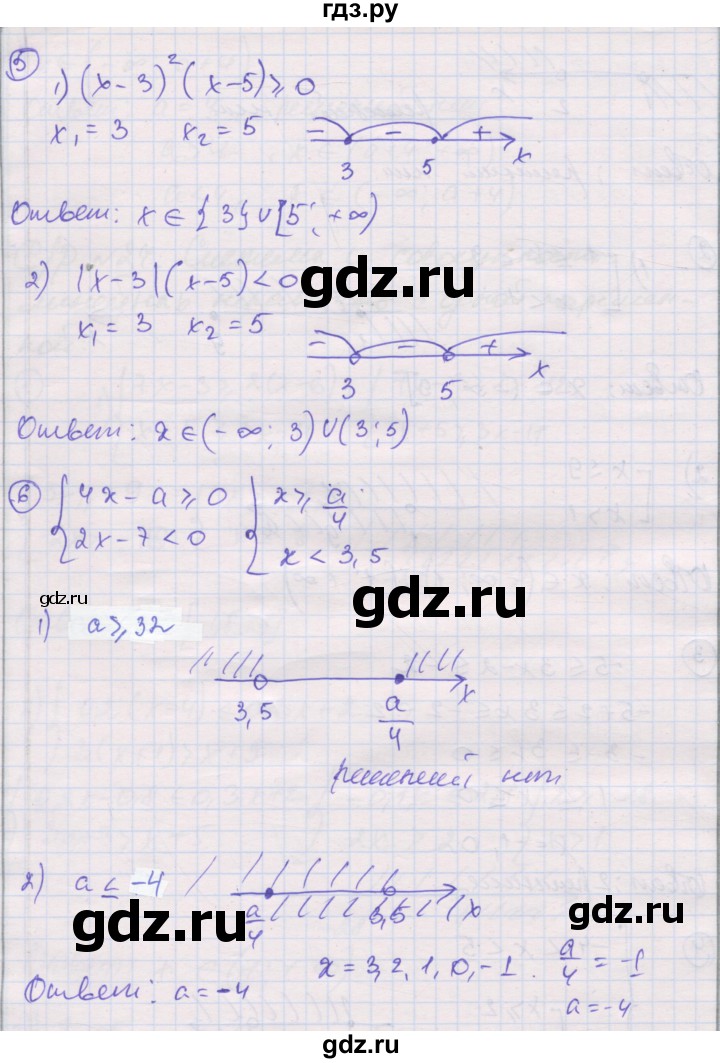 гдз.ру
5
1) (x - 3)² (x - 5) ≥ 0
x₁ = 3   x₂ = 5
− − +
3 5 x
Ответ: x ∈ {3} ∪ [5; +∞)
2) |x - 3| (x - 5) < 0
gdz.ru
x₁ = 3   x₂ = 5
− − +
3 5 x
Ответ: x ∈ (-∞; 3) ∪ (3; 5)
6 { 4x - a ≥ 0   { x ≥ a/4
2x - 7 < 0   x < 3,5
gdz.ru
1) a ≥ 32
3,5   a/4   x
решений нет
2) a ≤ -4
a/4   3,5   x
gdz.ru
x = 3, 2, 1, 0, -1.   a/4 = -1
gdz.ru
Ответ: a = -4   a = -4
gdz.ru